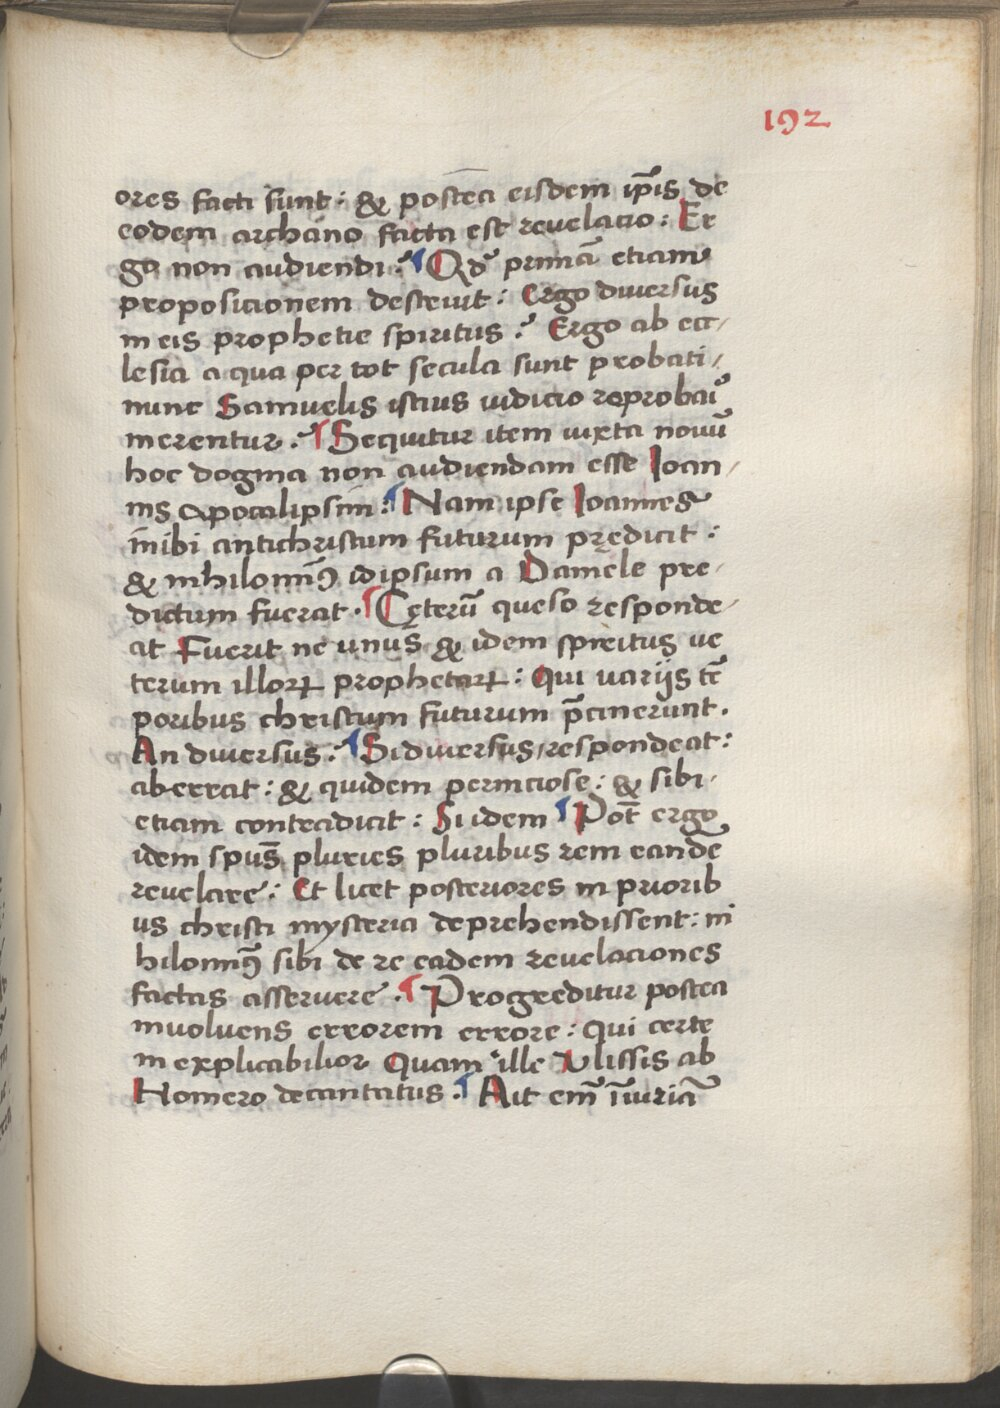 192
ores facti sunt : & postea eisdem ip̄is de
eodem archano facta est revelacio : Er
go non audiendi . ¶ Qd' primā etiam
proposicionem destruit : Ergo diversus
in eis prophetie spiritus ? Ergo ab ecc/
lesia a qua per tot secula sunt probati /
nunc Samuelis istius iudicio reprobai
merentur . ¶ Sequitur item iuxta novū
hoc dogma non audiendam esse Ioan /
nis apocalipsim : ¶ Nam ipse Ioannes
inibi antichristum futurum prędicit :
& nihilomin9 idipsum a Daniele pre /
dictum fuerat . ¶ Cęterū queso responde /
at Fuerit ne unus & idem spiritus ve
terum illoꝝ prophetaꝝ : Qui variis tē
poribus christum futurum p̄cinerunt .
An diversus : ¶ Si diversus / respondeat :
aberrat : & quidem perniciose : & sibi /
etiam contradicit : Si idem ¶ Pot̄ ergo
idem spūs pluries pluribus rem eandē
revelare : Et licet posteriores in priorib
us christi mysteria deprehendissent : ni
hilomin9 sibi de re eadem revelaciones
factas asseruere . ¶ Progreditur postea
involvens errorem errore : qui certe
inexplicabilior Quam ille Vlissis ab
Homero decantatus . ¶ Ait em̄ iniuriā